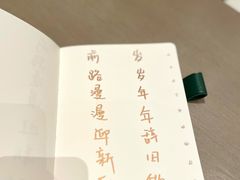 岁岁年年辞旧
前路漫漫迎新